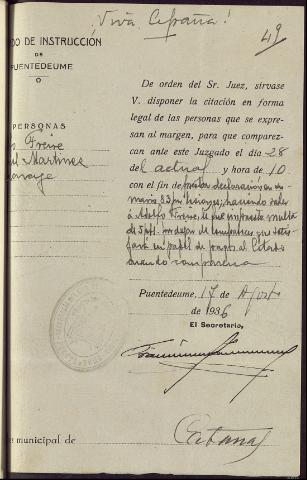 ¡Viva España!
49
DO DE INSTRUCCIÓN
DE
PUENTEDEUME
PERSONAS
Freire
Martinez
De orden del Sr. Juez, sírvase
V. disponer la citación en forma
legal de las personas que se expre-
san al margen, para que comparez-
can ante este Juzgado el día 28
del actual y hora de 10
con el fin de prestar declaración en
haciendo saber
a Adolfo Freire, le que impuesta multa
de 5 pts. de
en papel de pagos al Estado
cuando comparezca
Puentedeume, 17 de Agosto
de 1936
El Secretario,
e municipal de
Cabanas